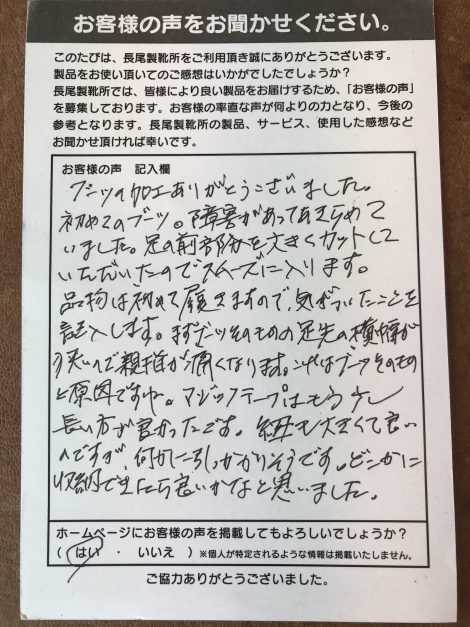 お客様の声をお聞かせください。
このたびは、長尾製靴所をご利用頂き誠にありがとうございます。
製品をお使い頂いてのご感想はいかがでしたでしょうか？
長尾製靴所では、皆様により良い製品をお届けするため、「お客様の声」
を募集しております。お客様の率直な声が何よりの力となり、今後の
参考となります。長尾製靴所の製品、サービス、使用した感想など
お聞かせ頂ければ幸いです。
お客様の声　記入欄
ブーツの加工ありがとうございました。
初めてのブーツ。障害があってあきらめて
いました。足の前部分を大きくカットして
いただいたのでスムーズに入ります。
品物は初めて履きますので、気がついたことを
記入します。まずブーツそのものの足先の横幅が
狭いので親指が痛くなります。これはブーツそのもの
原因ですね。マジックテープはもう少し
長い方が良かったです。紐も大きくて良い
のですが、何かに引っかかりそうです。どこかに
収納できたら良いかなと思いました。
ホームページにお客様の声を掲載してもよろしいでしょうか？
（ はい ・ いいえ ）※個人が特定されるような情報は掲載いたしません。
ご協力ありがとうございました。